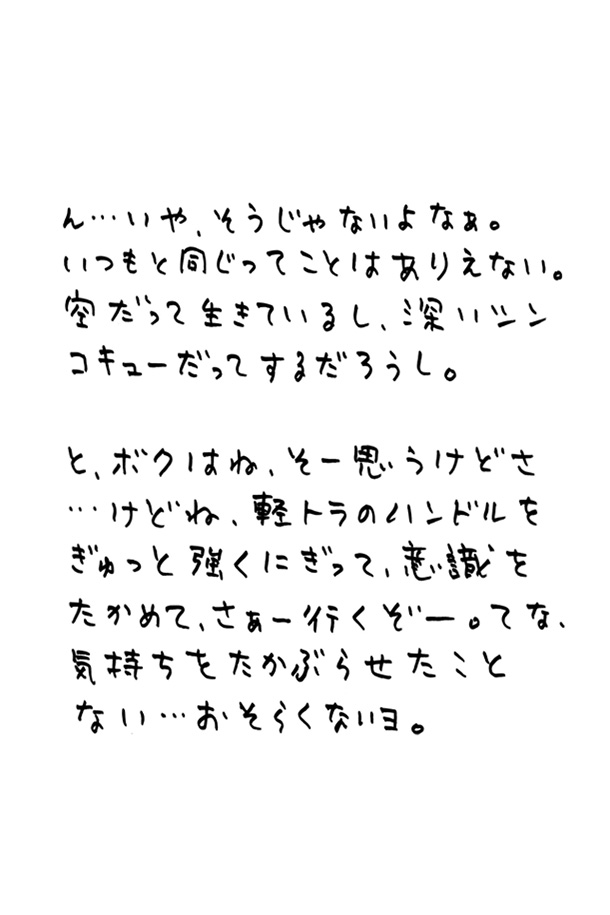 ん…いや、そうじゃないよなぁ。
いつもと同じってことはありえない。
空だって生きているし、深いシン
コキューだってするだろうし。
と、ボクはね、そー思うけどさ
…けどね、軽トラのハンドルを
ぎゅっと強くにぎって、意識を
たかめて、さぁー行くぞー。てな、
気持ちをたかぶらせたこと
ない…おそらくないヨ。